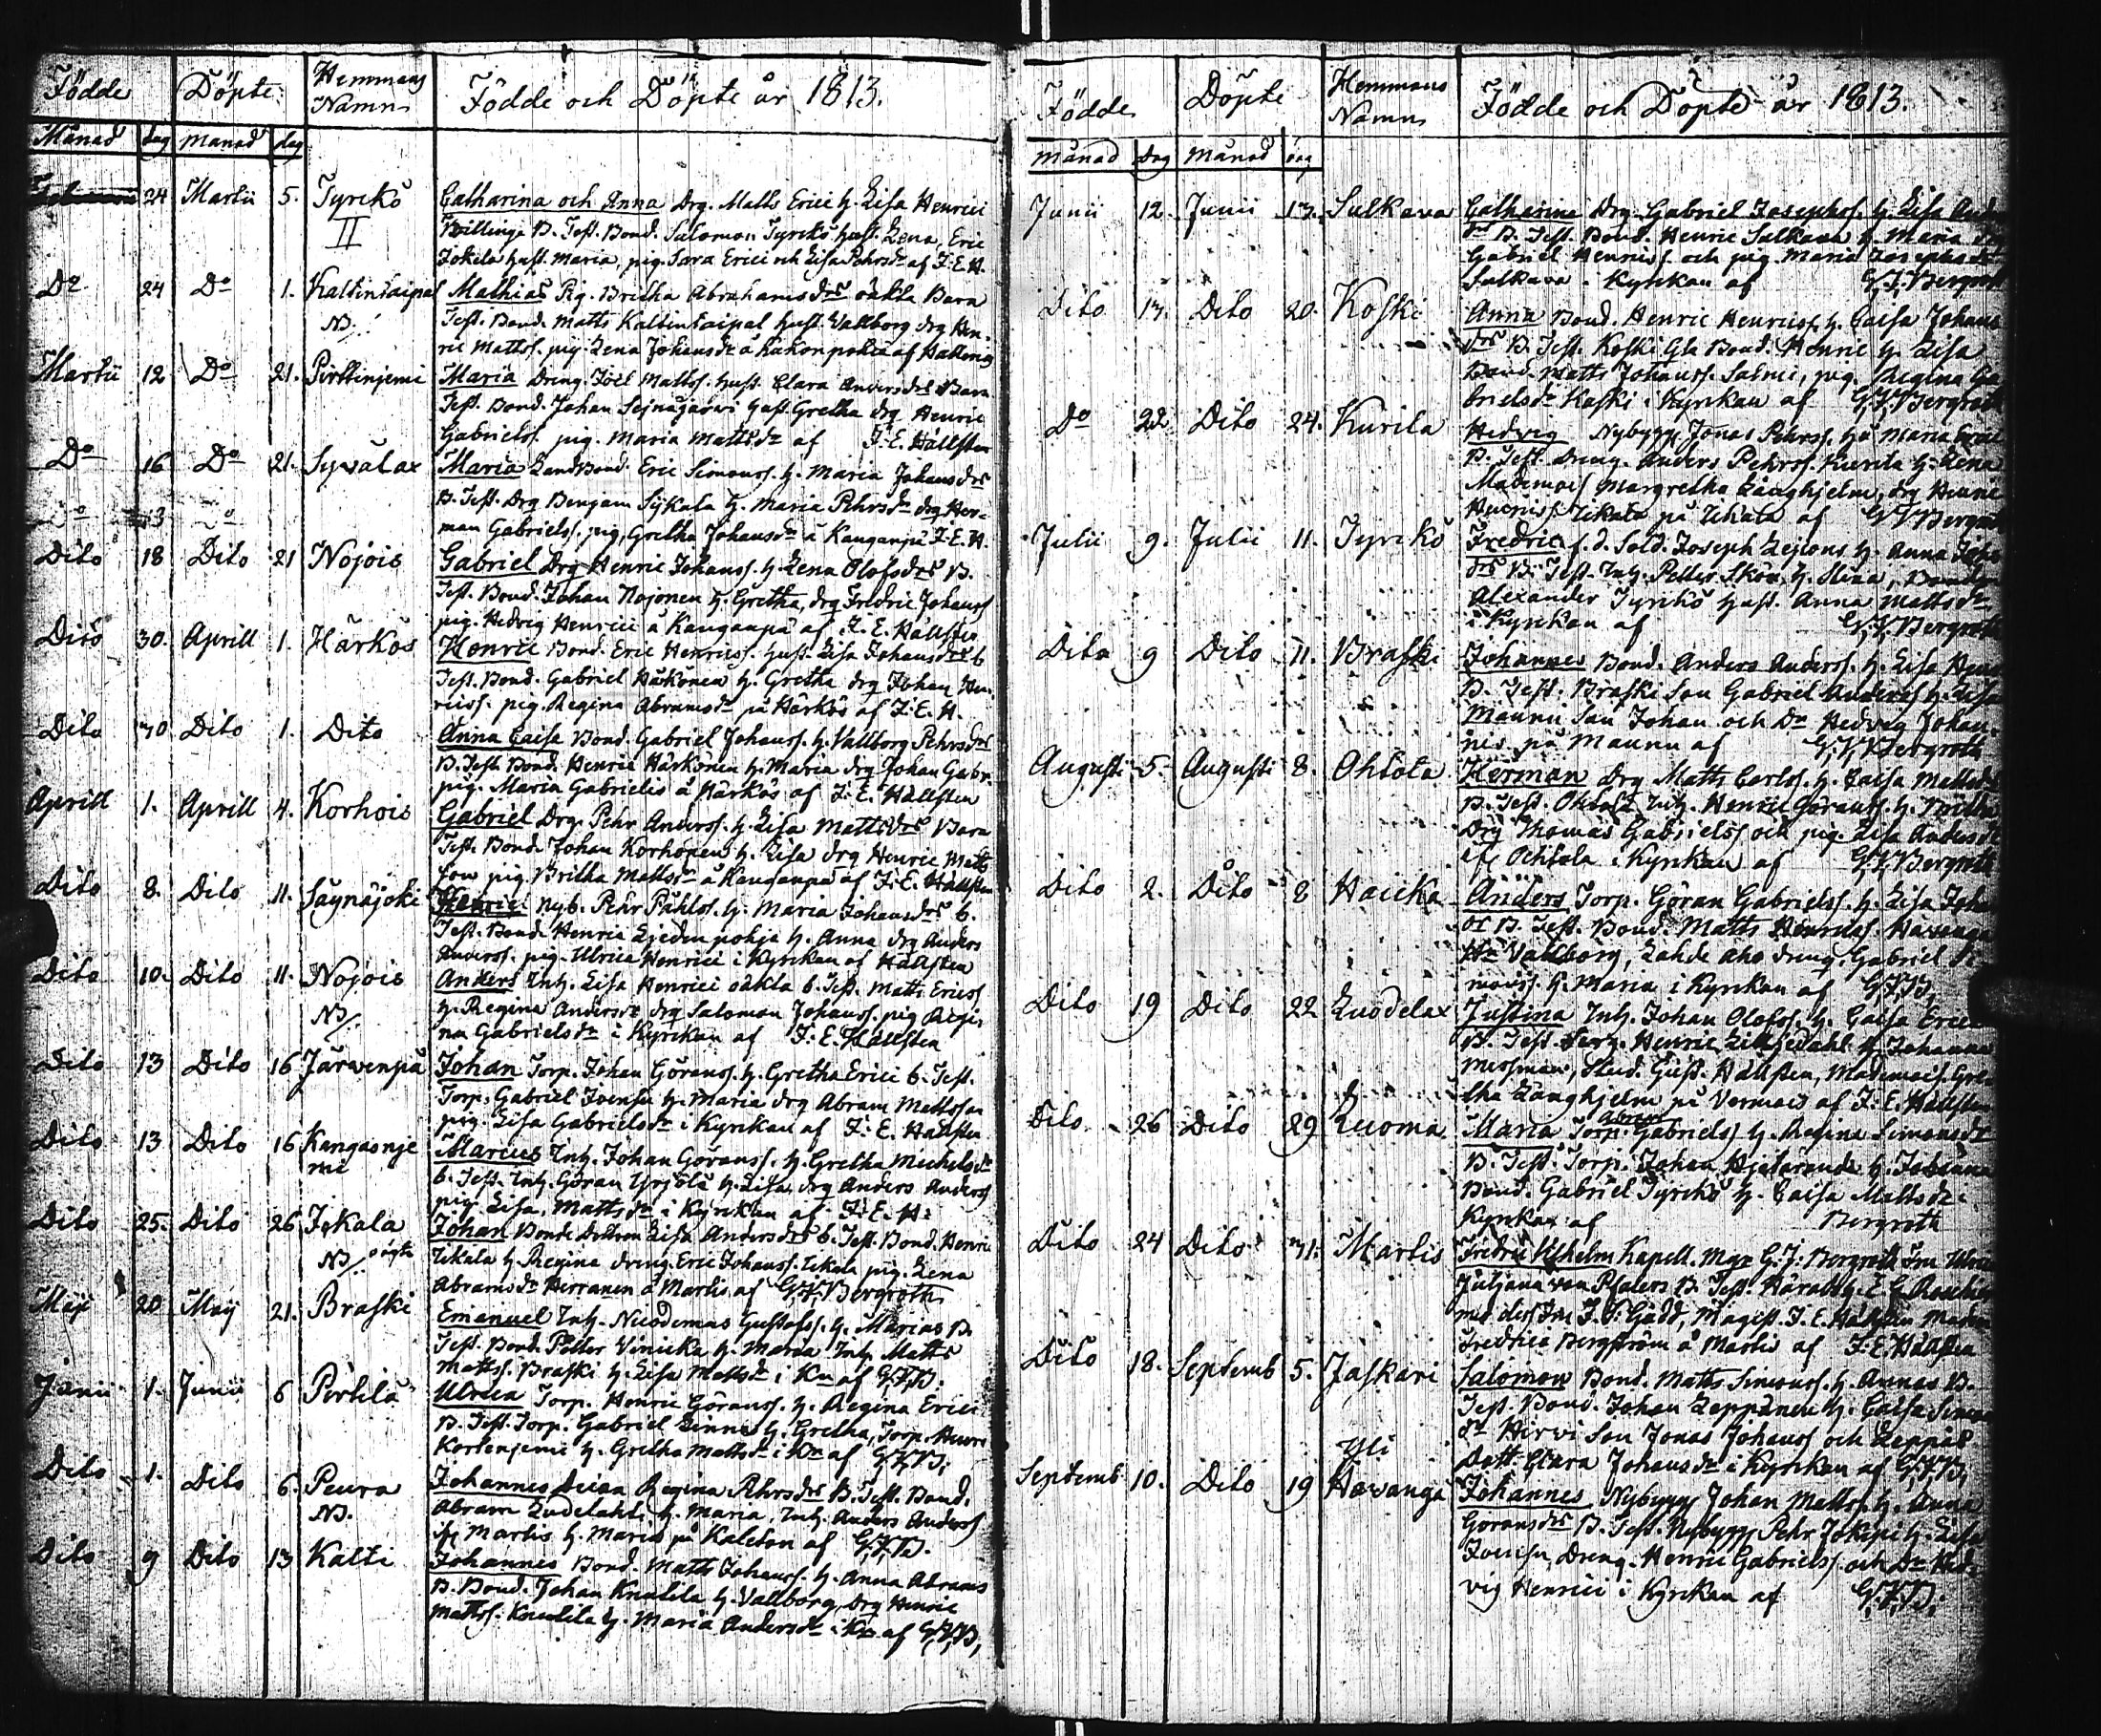 Födde Döpte Hemmans Namn Födde och Döpte år 1813.
Månad dag månad dag
24 Martii 5. Tyrckö Catharina och Anna Drg. Matts Erici h. Lisa Henrici
II Tvillingr B. Test. Bond. Salomon Tyrckö hust. Lena, Eric
Jokela hust. Maria, pig. Sara Erici och Lisa Pehrsdr af J. E. H.
Do 24 Do 1. Kaltintaipal Mathias Pig. Britha Abrahamsdrs oäkta Barn
NB. Test. Bond. Matts Kaltintaipal hust. Vallborg drg Hen-
ric Mattss. pig. Lena Johansdr å Kukonpohia af Hällsten
Martii 12 Do 21. Pirttinjemi Maria Dreng. Joel Mattss. hust. Clara Andersdrs Barn
Test. Bond. Johan Sejnäjärvi hust. Gretha drg Henric
Gabrielss. pig. Maria Mattsdr af J. E. Hällsten
Do 16 Do 21. Syvälax Maria Landbond. Eric Simonss. h. Maria Johansdrs
B. Test. Drg Benjam Sykala h. Maria Pehrsdr drg Her-
man Gabrielss. pig. Gretha Johansdr å Kanganpä J. E. H.
Dito 18 Dito 21 Nojois Gabriel Drg Henric Johanss. h. Lena Olofsdrs B.
Test. Bond. Johan Nojonen h. Gretha, drg Fredric Johanss
pig. Hedvig Henrici å Kanganpä af J. E. Hällsten
Dito 30. Aprill 1. Härkös Henric Bond. Eric Henricss. hust. Lisa Johansdrs b.
Test. Bond. Gabriel Härkönen h. Gretha drg Johan Hen-
ricss. pig. Regina Abramsdr på Härkös af J. E. H.
Dito 30 Dito 1. Dito Anna Caisa Bond. Gabriel Johanss. h. Vallborg Pehrsdrs
B. Test. Bond. Henric Härkönen h. Maria drg Johan Gabr.
pig. Maria Gabrielis å Härkös af J. E. Hällsten
Aprill 1. Aprill 4. Korhois Gabriel Drg. Pehr Anderss. h. Lisa Mattsdrs Barn
Test. Bond. Johan Korhonen h. Lisa drg Henric Matts
son pig. Britha Mattsdr å Kanganpä af J. E. Hällsten
Dito 8. Dito 11. Säynäjoki Henric Nyb. Pehr Påhlss. h. Maria Johansdrs b.
Test. Bond. Henric Liedenpohja h. Anna drg Anders
Anderss. pig. Ulrica Henrici i Kyrckan af Hällsten
Dito 10. Dito 11. Nojois Anders Inh. Lisa Henrici oäkta b. Test. Matts Ericss
NB. h. Regina Andersdr drg Salomon Johanss. pig Regi-
na Gabrielsdr i Kyrckan af J. E. Hällsten
Dito 13 Dito 16 Järvenpä Johan Torp. Johan Göranss. h. Gretha Erici b. Test.
Torp. Gabriel Ivensu h. Maria drg Abram Mattsson
pig. Lisa Gabrielsdr i Kyrckan af J. E. Hällsten
Dito 13 Dito 16 Kangasnje Marcus Inh. Johan Göranss. h. Gretha Michelsdr
mi b. Test. Inh. Göran Yrjölä h. Lisa drg Anders Anderss
pig Lisa Mattsdr i Kyrckan af J. E. H.
Dito 25. Dito 26 Jokala Johan Bonde Dottren Lisa Andersdrs b. Test. Bond. Henric
NB oägta Ukala h. Regina dreng. Eric Johanss. Ukala pig. Lena
Abramsdr Herranen å Martis af G. J. Bergroth
Maji 20 Maij 21. Braski Emanuel Inh. Nicodemus Gustafss. h. Marias B.
Test. Bond. Petter Vinicka h. Maria Inh. Matts
Mattss. Braski h. Lisa Mattsdr i Kn af G. J. B.
Junii 1. Junii 6 Pertilä Ulrica Torp. Henric Göranss. h. Regina Erici
B. Test. Torp. Gabriel Linne h. Gretha, Torp. Henric
Kortenjemi h. Gretha Mattsdr i Kn af G. J. B.
Dito 1. Dito 6. Peura Johannes Deian Regina Pehrsdrs B. Test. Bond.
NB. Abram Ludelahti h. Maria, Inh. Anders Anderss
ifr Martis h. Maria på Kaleton af G. J. B.
Dito 9 Dito 13 Kalti Johannes Bond. Matts Johanss. h. Anna Abrams
B. Bond. Johan Knuutila h. Vallborg, Drg Henric
Mattss. Knuutila h. Maria Andersdr i Kn af G. J. B.
Födde Döpte Hemmans Namn Födde och Döpte år 1813.
månad Dag månad dag
Junii 12. Junii 13. Sulkava Catharina Drg. Gabriel Josephss. h. Lisa
drs B. Test. Bond. Henric Sulkava h. Maria
Gabriel Henricss. och pig. Maria Josephsdr
Sulkava i Kyrckan af G. J. Bergroth
Dito 13. Dito 20. Koski Anna Bond. Henric Henricss. h. Caisa Johans
drs B. Test. Koski Gla Bond. Henric h. Lisa
Bond. Matts Johanss. Salmi, pig. Regina Ga-
brielsdr Koski i Kyrckan af G. J. Bergroth
Do 22 Dito 24. Kurila Hedvig Nybygg. Jonas Pehrss. h. Maria Erici
B. Test. Dreng. Anders Pehrss. Kurila h. Lena
Mademois Margretha Långhjelm, drg Henric
Henricss. Ukala på Ukala af G. J. Bergroth
Julii 9. Julii 11. Tyrckö Fredric f. d. Sold. Joseph Lejons h. Anna
drs B. Test. Inh. Petter Skön h. Stina,
Alexander Tyrckö hust. Anna Mattsdr
i Kyrckan af G. J. Bergroth
Dito 9 Dito 11. Braski Johannes Bond. Anders Anderss. h. Lisa
B. Test. Braski Son Gabriel Anderss h. Lisa
Maunu Son Johan och Dr Hedvig Johan-
nis på Maunu af G. J. Bergroth
Augusti 5. Augusti 8. Ohtola Herman Drg Matts Carlss. h. Caisa Mattsdr
B. Test. Ohtola Inh. Henric Göranss. h. Britha
Drg Thomas Gabrielss och pig. Lisa Andersdr
ifr Ochtola i Kyrckan af G. J. Bergroth
Dito 2. Dito 8 Haicka Anders Torp. Göran Gabrielss. h. Lisa
dr B. Test. Bond. Matts Henricss. Havanga
Hu Vallborg, Lahde aho dreng. Gabriel
monss. h. Maria i Kyrckan af G. J. B.
Dito 19 Dito 22 Luodelax Justina Inh. Johan Olofss. h. Caisa Erici
B. Test. Serg. Henric Liljedahl h. Johanna
Mosman, Stud. Gust. Hällsten, Mademois. Gre-
tha Långhjelm på Vermais af J. E. Hällsten
Dito 26 Dito 29 Luoma Maria Torp. Abram Gabrielss h. Regina Simonsdr
B. Test. Torp. Johan Hjetaranda h. Johanna
Bond. Gabriel Tyrckö h. Caisa Mattsdr i
Kyrckan af Bergroth
Dito 24 Dito 31. Martis Fredric Vilhelm Kapell. Magr G. J. Bergroth Fru Ulrica
Juljana von Pfalers B. Test. Häradsh. L. G.
med dess Fru J. S. Gadd, Magist. J. E. Hällsten Madem
Fredrica Bergström å Martis af J. E. Hällsten
Dito 18. Septemb 5. Jaskari Salomon Bond. Matts Simonss. h. Annas B.
Test. Bond. Johan Leppänen h. Caisa Simons
dr Hirvi Son Jonas Johanss och Leppäs
Dott. Clara Johansdr i Kyrckan af G. J. B.
Septemb 10. Dito 19 Yli Havanga Johannes Nybygg Johan Mattss. h. Anna
Göransdrs B. Test. Nybygg Pehr Jokipi h. Lisa
Ivensu, Dreng. Henric Gabrielss. och Dr Hed-
vig Henrici i Kyrckan af G. J. B.